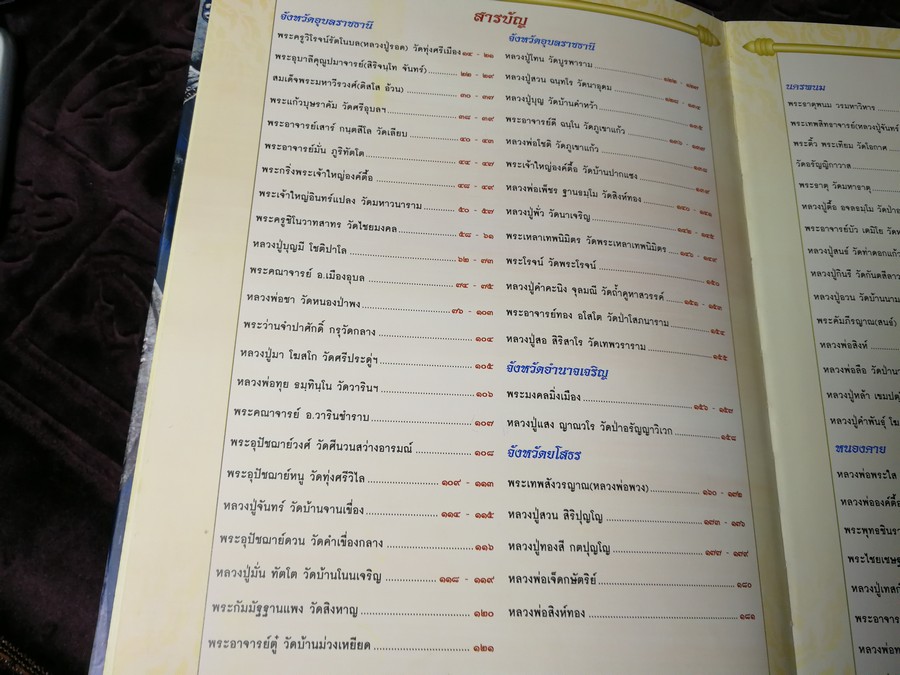 สารบัญ
จังหวัดอุบลราชธานี
พระครูวิโรจน์รัตโนบล(หลวงปู่รอด) วัดทุ่งศรีเมือง ๑๔ - ๒๑
พระอุบาลีคุณูปมาจารย์(สิริจนฺโท จันทร์) ๒๒ - ๒๙
สมเด็จพระมหาวีรวงศ์(ติสโส อ้วน) ๓๐ - ๓๗
พระแก้วบุษราคัม วัดศรีอุบลฯ ๓๘ - ๓๙
พระอาจารย์เสาร์ กนฺตสีโล วัดเลียบ ๔๐ - ๔๓
พระอาจารย์มั่น ภูริทัตโต ๔๔ - ๔๗
พระกริ่งพระเจ้าใหญ่องค์ตื้อ ๔๘ - ๔๙
พระเจ้าใหญ่อินทร์แปลง วัดมหาวนาราม ๕๐ - ๕๗
พระครูชิโนวาทสาทร วัดไชยมงคล ๕๘ - ๖๑
หลวงปู่บุญมี โชติปาโล ๖๒ - ๗๓
พระคณาจารย์ อ.เมืองอุบล ๗๔ - ๗๕
หลวงพ่อชา วัดหนองป่าพง ๗๖ - ๑๐๓
พระว่านจำปาศักดิ์ กรุวัดกลาง ๑๐๔
หลวงปู่มา โฆสโก วัดศรีประดู่ฯ ๑๐๕
หลวงพ่อทุย ธมฺทินฺโน วัดวารินฯ ๑๐๖
พระคณาจารย์ อ.วารินชำราบ ๑๐๗
พระอุปัชฌาย์วงศ์ วัดศีนวนสว่างอารมณ์ ๑๐๘
พระอุปัชฌาย์หนู วัดทุ่งศรีวิไล ๑๐๙ - ๑๑๓
หลวงปู่จันทร์ วัดบ้านจานเขื่อง ๑๑๔ - ๑๑๕
พระอุปัชฌาย์ดวน วัดคำเขื่องกลาง ๑๑๖
หลวงปู่มั่น ทัตโต วัดบ้านโนนเจริญ ๑๑๘ - ๑๑๙
พระกัมมัฐฐานแพง วัดสิงหาญ ๑๒๐
พระอาจารย์ตู๋ วัดบ้านม่วงเหยียด ๑๒๑
จังหวัดอุบลราชธานี
หลวงปู่โทน วัดบูรพาราม
หลวงปู่สวน ฉนฺทโร วัดนาอุดม
หลวงปู่บุญ วัดบ้านคำหว้า ๑๓๕
พระอาจารย์ดี ฉนฺโน วัดภูเขาแก้ว
หลวงพ่อโชติ วัดภูเขาแก้ว
พระเจ้าใหญ่องค์ตื้อ วัดบ้านปากแซง ๑๓๙
หลวงพ่อเพ็ชร ฐานธมฺโม วัดสิงห์ทอง ๑๔๐ - ๑๔๑
หลวงปู่พั่ว วัดนาเจริญ ๑๔๒ - ๑๔๕
พระเหลาเทพนิมิตร วัดพระเหลาเทพนิมิตร ๑๔๖ - ๑๔๙
พระโรจน์ วัดพระโรจน์ ๑๕๐
หลวงปู่คำคะนิง จุลมณี วัดถ้ำคูหาสวรรค์ ๑๕๑ - ๑๕๓
พระอาจารย์ทอง อโสโต วัดป่าโสภณาราม ๑๕๔
หลวงปู่สอ สิริสาโร วัดเทพวราราม ๑๕๕
จังหวัดอำนาจเจริญ
พระมงคลมิ่งเมือง ๑๕๖ - ๑๕๗
หลวงปู่แสง ญาณวโร วัดป่าอรัญญาวิเวก ๑๕๘
จังหวัดยโสธร
พระเทพสังวรญาณ(หลวงพ่อพวง) ๑๖๐ - ๑๗๒
หลวงปู่สวน สิริปุญฺโญ ๑๗๓ - ๑๗๖
หลวงปู่ทองสี กตปุญฺโญ ๑๗๗ - ๑๗๙
หลวงพ่อเจ็ดกษัตริย์ ๑๘๐
หลวงพ่อสิงห์ทอง ๑๘๑
นครพนม
พระธาตุพนม วรมหาวิหาร
พระเทพสิทธาจารย์(หลวงปู่จันทร์
พระติ้ว พระเทียม วัดโอกาศ
วัดอรัญญิกาวาส
พระธาตุ วัดมหาธาตุ
หลวงปู่ตื้อ อจลธมฺโม วัดป่า
พระอาจารย์บัว เตมิโย
หลวงปู่สนธ์ วัดท่าดอกแก้ว
หลวงปู่กินรี วัดกันตสีลา
หลวงปู่อวน วัดบ้านนาม
พระคัมภีรญาณ(สนธ์)
หลวงพ่อสิงห์
หลวงพ่อลือ วัดป่านา
หลวงปู่หล้า เขมปตฺ
หลวงปู่คำพันธุ์ โฆ
หนองคาย
หลวงพ่อพระใส
หลวงพ่อองค์ตื้อ
พระพุทธชินรา
พระไชยเชษฐ
หลวงปู่เทสก์
พระอาจาร
หลวงพ่อท